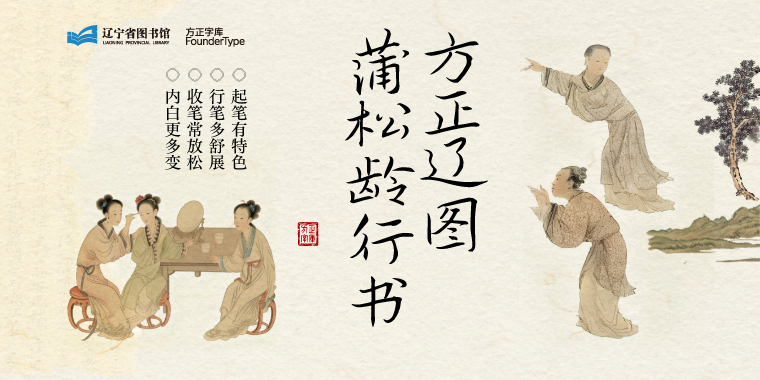 辽宁省图书馆
LIAONING PROVINCIAL LIBRARY
方正字库
FounderType
方正辽图
蒲松龄行书
起笔有特色
行笔多舒展
收笔常放松
内白更多变